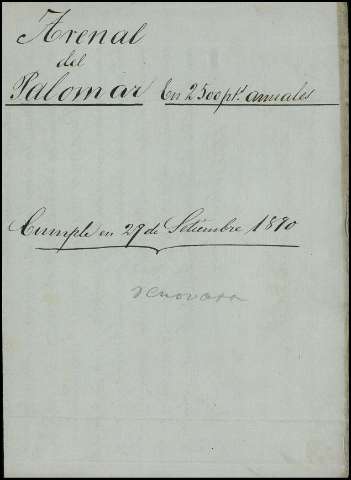 Arenal
del
Palomar En 2500 pts. anuales
Cumple en 29 de Setiembre 1890
renovada